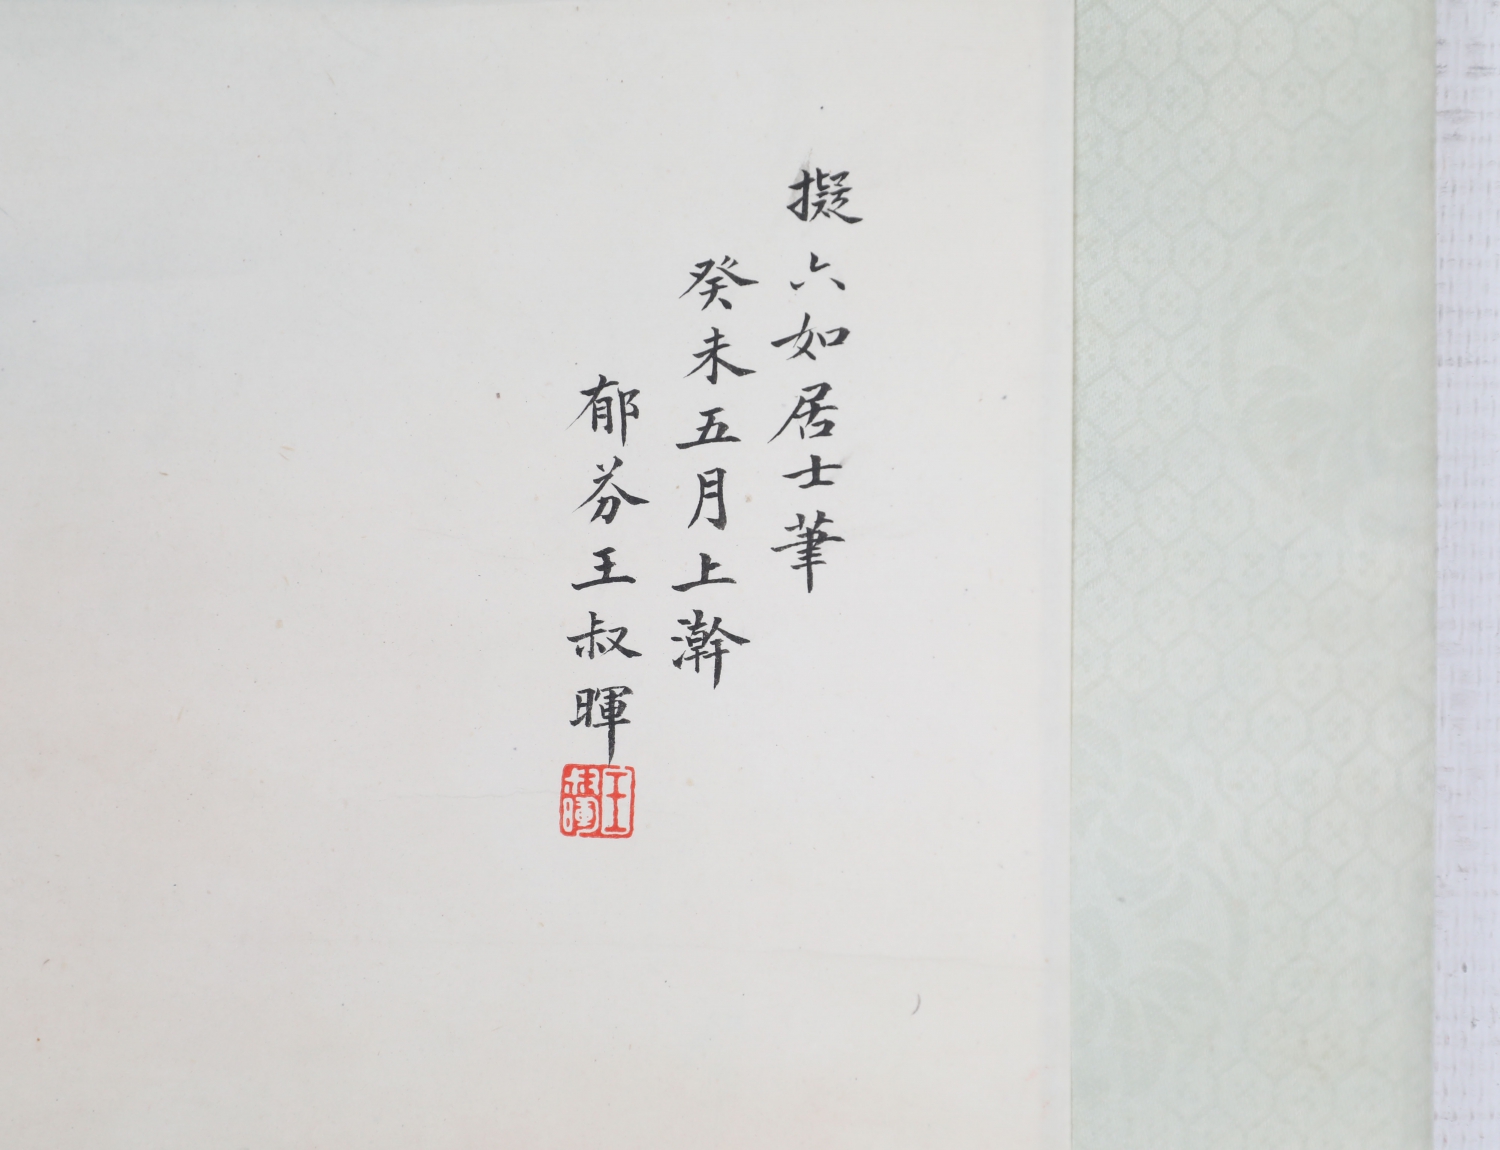 擬六如居士筆
癸未五月上澣
郁芬王叔暉
王叔暉